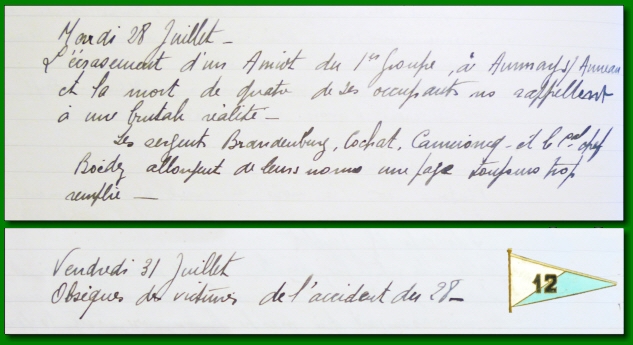 Mardi 28 Juillet -
L'écrasement d'un Amiot du 1er Groupe, à Aumays/Auneau
et la mort de quatre de ses occupants ns rappellent
à une brutale réalité -
Les sergents Brandenburg, Cochat, et le cal chef
Boëdez allongent de leurs noms une page toujours trop
remplie —
Vendredi 31 Juillet
Obsèques des victimes de l'accident du 28 -
12